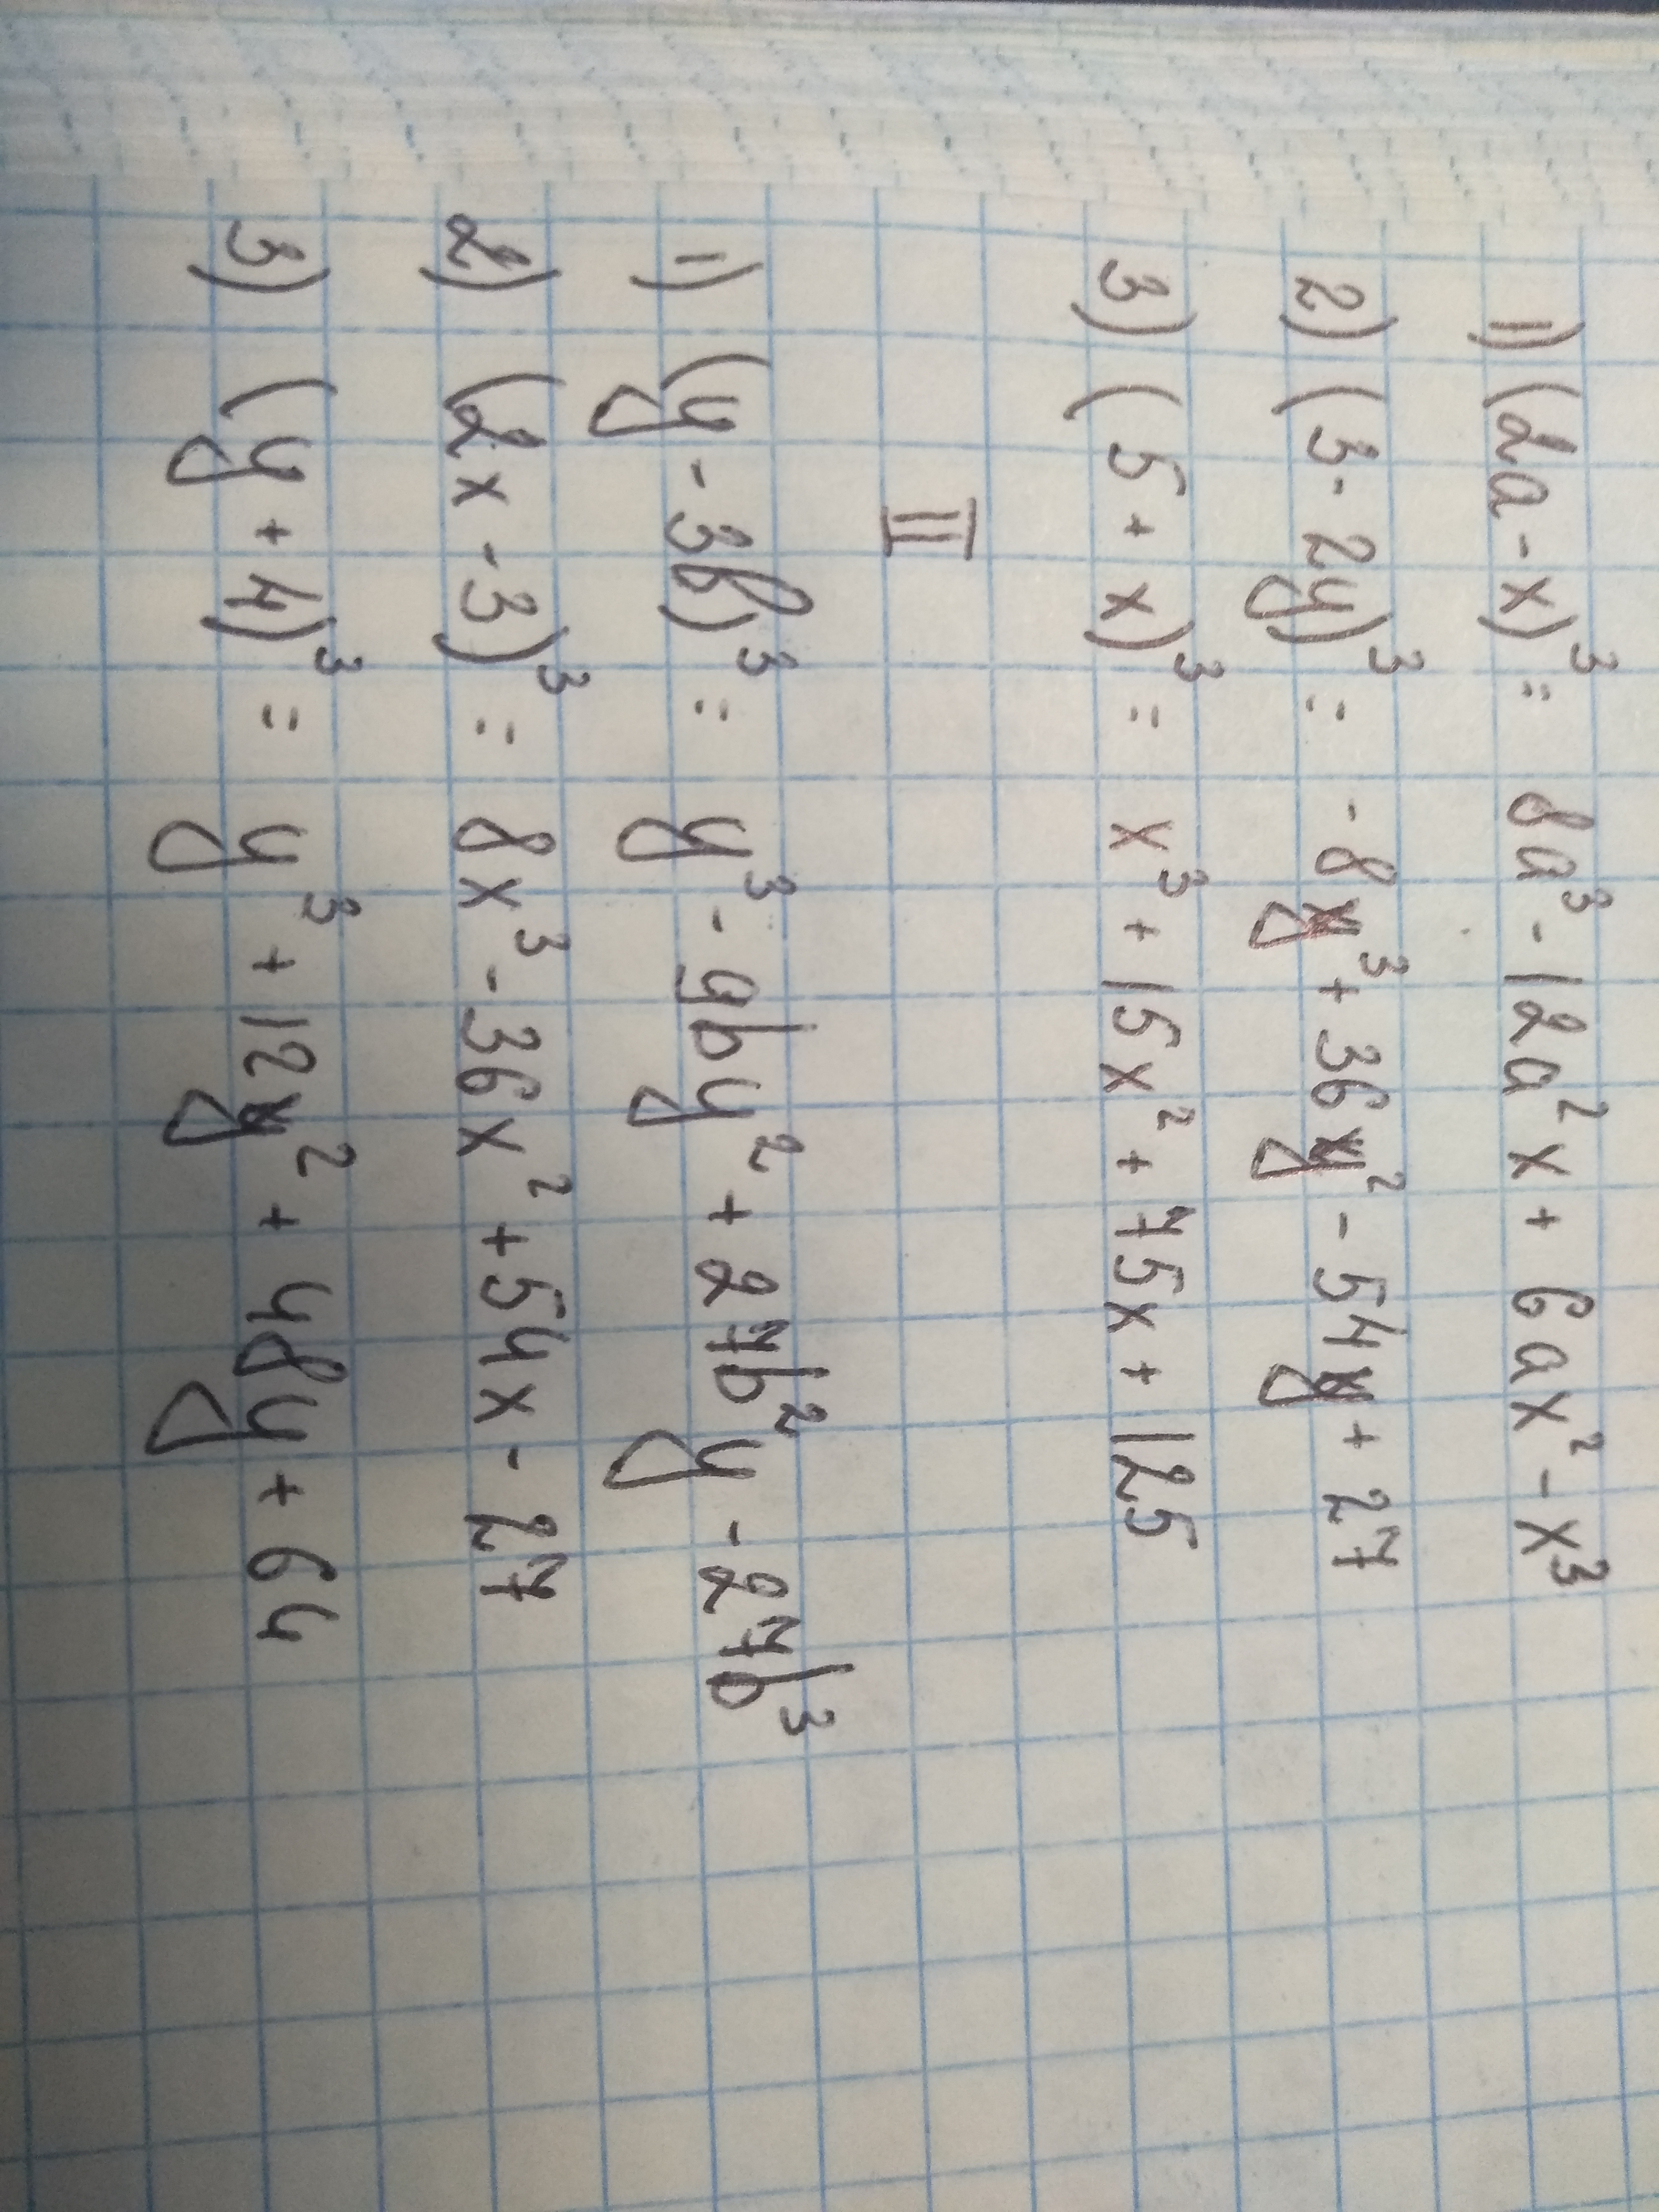 1) (2a - x)³ = 8a³ - 12a²x + 6ax² - x³
2) (3 - 2y)³ = -8y³ + 36y² - 54y + 27
3) (5 + x)³ = x³ + 15x² + 75x + 125
II
1) (y - 3b)³ = y³ - 9by² + 27b²y - 27b³
2) (2x - 3)³ = 8x³ - 36x² + 54x - 27
3) (y + 4)³ = y³ + 12y² + 48y + 64